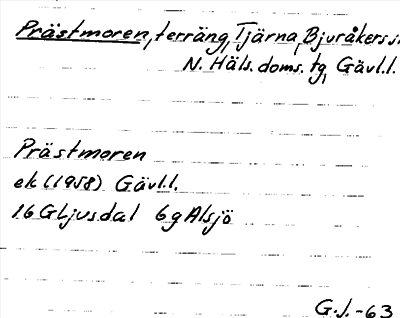 Prästmoren, terräng, Tjärna, Bjuråkers sn
N. Häls. doms. tg, Gävl.l.
Prästmoren
ek (1958) Gävl.l.
16G Ljusdal 6g Alsjö
G.J. -63